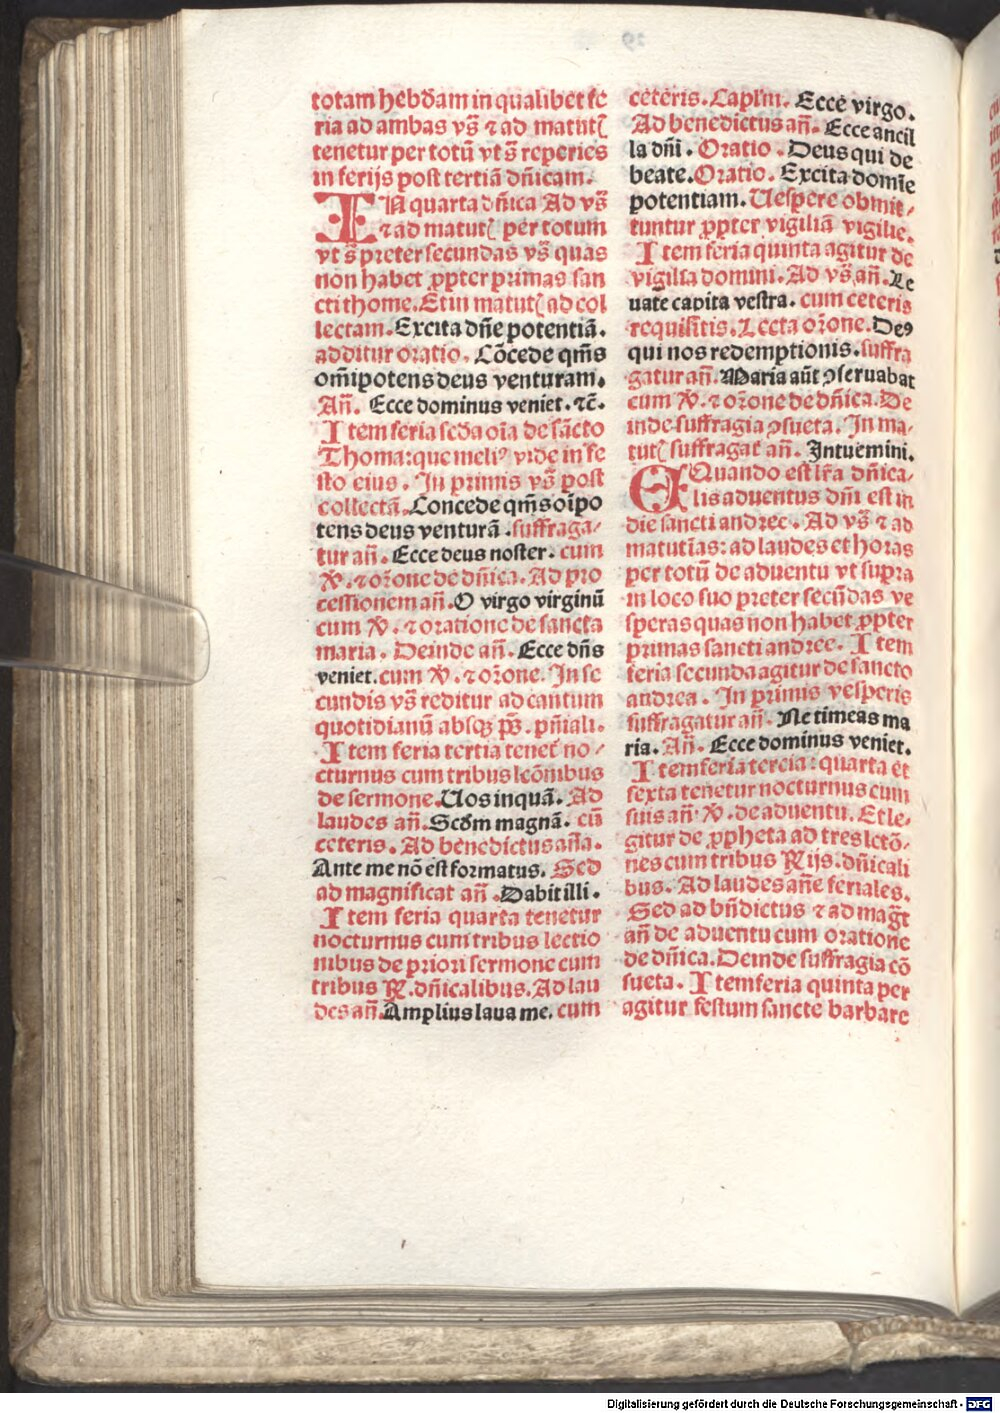 totam hebdãm in qualibet fe
ria ad ambas vs̃ ⁊ ad matut͛
tenetur per totũ vt s̃ reperies
in ferijs post tertiã dñicam.
IN quarta dñica Ad vs̃
⁊ ad matut͛ per totum
vt s̃ preter secundas vs̃ quas
non habet ꝓpter primas san
cti thome. Et in matut͛ ad col
lectam. Excita dñe potentiã.
additur oratio. Cõcede qm̃s
om̃ipotens deus venturam.
Añ. Ecce dominus veniet. ⁊c̃.
Item feria sc̃da oĩa de sãcto
Thoma: que meliꝰ vide in fe
sto eius. In primis vs̃ post
collectã. Concede qm̃s oĩpo
tens deus venturã. suffraga⸗
tur añ. Ecce deus noster. cum
℣. ⁊ or̃one de dñica. Ad pro
cessionem añ. O virgo virginũ
cum ℣. ⁊ oratione de sancta
maria. Deinde añ. Ecce dñs
veniet. cum ℣. ⁊ or̃one. In se
cundis vs̃ reditur ad cantum
quotidianũ absqꝫ ps̃. pñiali.
Item feria tertia tenet̃ no⸗
cturnus cum tribus lcõnibus
de sermone. Uos inquã. Ad
laudes añ. Scd̃m magnã. cũ
ceteris. Ad benedictus añã.
Ante me nõ est formatus. Sed
ad magnificat añ. Dabit illi.
Item feria quarta tenetur
nocturnus cum tribus lectio
nibus de priori sermone cum
tribus ℟. dñicalibus. Ad lau
des añ. Amplius laua me. cum
ceteris. Capl̃m. Ecce virgo.
Ad benedictus añ. Ecce ancil
la dñi. Oratio. Deus qui de
beate. Oratio. Excita domĩe
potentiam. Uespere obmit⸗
tuntur ꝓpter vigiliã vigilie.
Item feria quinta agitur de
vigilia domini. Ad vs̃ añ. Le
uate capita vestra. cum ceteris
requisitis. Lecta or̃one. Deꝰ
qui nos redemptionis. suffra
gatur añ. Maria aũt ꝯseruabat
cum ℣. ⁊ or̃one de dñica. De
inde suffragia ꝯsueta. In ma⸗
tut͛ suffragat̃ añ. Intuemini.
Quando est lr̃a dñica⸗
lis aduentus dñi est in
die sancti andree. Ad vs̃ ⁊ ad
matutĩas: ad laudes et horas
per totũ de aduentu vt supra
in loco suo preter secũdas ve
speras quas non habet ꝓpter
primas sancti andree. Item
feria secunda agitur de sancto
andrea. In primis vesperis
suffragatur añ. Ne timeas ma
ria. Añ. Ecce dominus veniet.
Item feria tercia: quarta et
sexta tenetur nocturnus cum
suis añ ℣. de aduentu. Et le⸗
gitur de ꝓpheta ad tres lctõ⸗
nes cum tribus ℟ijs. dñicali
bus. Ad laudes añe feriales.
Sed ad bñdictus ⁊ ad magt̃
añ de aduentu cum oratione
de dñica. Deinde suffragia cõ
sueta. Item feria quinta per
agitur festum sancte barbare
Digitalisierung gefördert durch die Deutsche Forschungsgemeinschaft - DFG